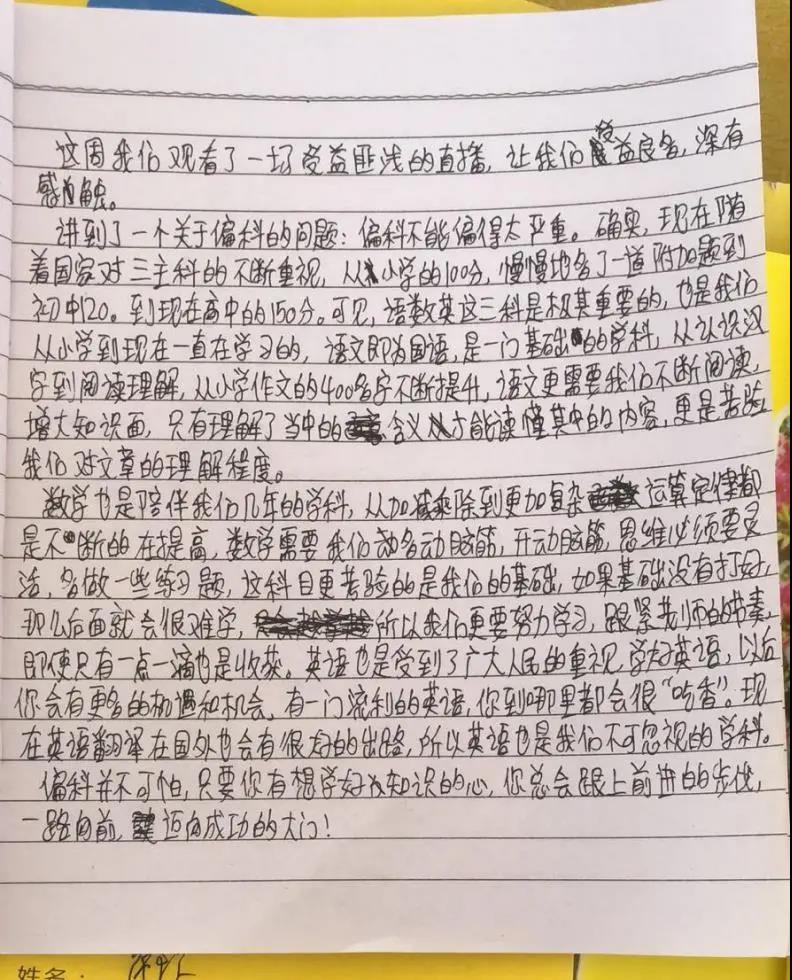 这周我们观看了一场受益匪浅的直播，让我们受益良多，深有
感触。
讲到了一个关于偏科的问题：偏科不能偏得太严重。确实，现在随
着国家对三主科的不断重视，从小学的100分，慢慢地多了一道附加题到
初中120。到现在高中的150分。可见，语数英这三科是极其重要的，也是我们
从小学到现在一直在学习的，语文即为国语，是一门基础的学科，从认识汉
字到阅读理解，从小学作文的400多字不断提升，语文更需要我们不断阅读，
增大知识面，只有理解了当中的含义才能读懂其中的内容，更是考验
我们对文章的理解程度。
数学也是陪伴我们几年的学科，从加减乘除到更加复杂运算定律都
是不断的在提高，数学需要我们多动脑筋，开动脑筋，思维必须要灵
活，多做一些练习题，这科目更考验的是我们的基础，如果基础没有打好，
那么后面就会很难学，所以我们更要努力学习，跟紧老师的节奏，
即使只有一点一滴也是收获。英语也是受到了广大人民的重视，学好英语，以后
你会有更多的机遇和机会，有一门流利的英语，你到哪里都会很“吃香”。现
在英语翻译在国外也会有很好的出路，所以英语也是我们不可忽视的学科。
偏科并不可怕，只要你有想学好知识的心，你总会跟上前进的步伐，
一路向前，迈向成功的大门！
姓名：